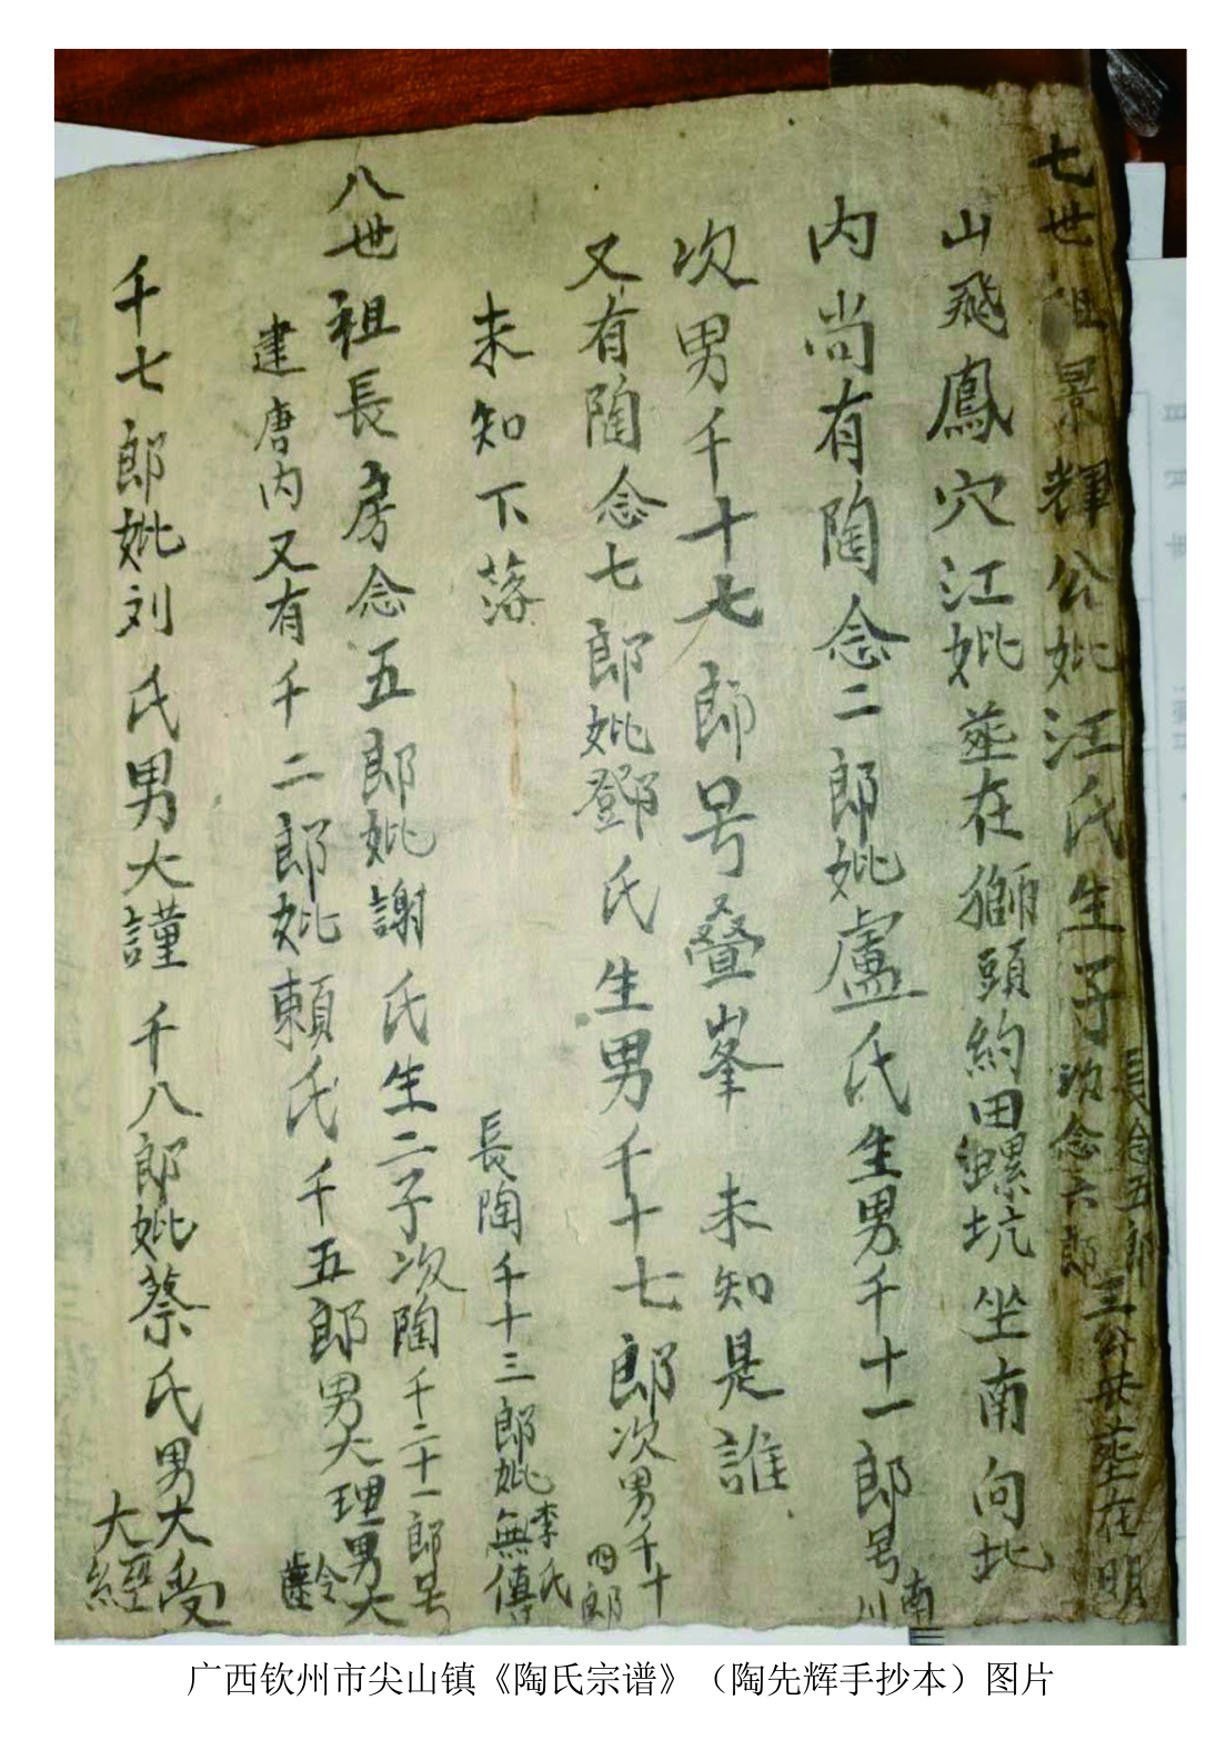 七世祖景輝公妣江氏生子長念五郎次念六郎三公共葬在明
山飛鳳穴江妣葬在獅頭約田螺坑坐南向北
内尚有陶念二郎妣盧氏生男千十一郎号南川
次男千十七郎号叠峯 未知是誰
又有陶念七郎妣鄧氏生男千十七郎次男千十四郎
未知下落 長陶千十三郎妣李氏無傳
八世祖長房念五郎妣謝氏生二子次陶千二十一郎号
建唐内又有千二郎妣賴氏千五郎男大理男大齡
千七郎妣刘氏男大謹 千八郎妣蔡氏男大受大經
广西钦州市尖山镇《陶氏宗谱》（陶先辉手抄本）图片